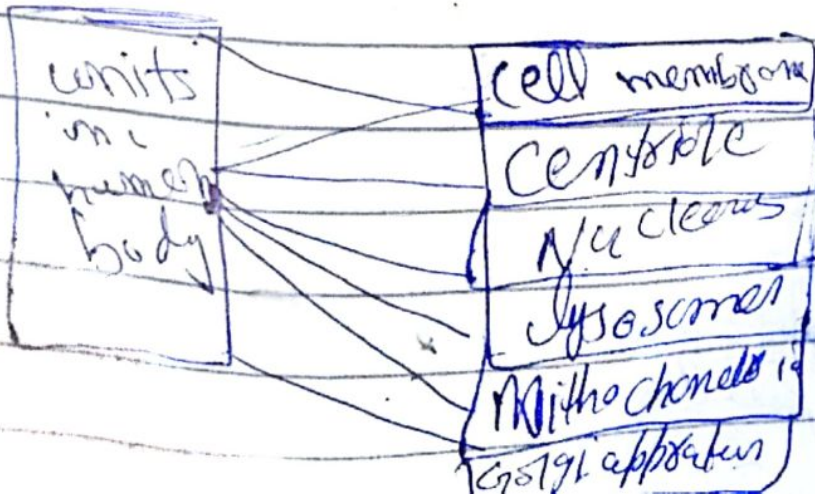 units
in
humen
body
cell membrane
Centriole
Nucleus
lysosomes
Mithochondria
Golgi appratus